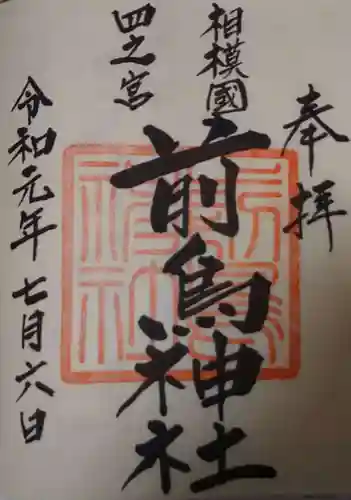 奉拝
相模國
四之宮
前鳥神社
令和元年七月六日
前鳥神社